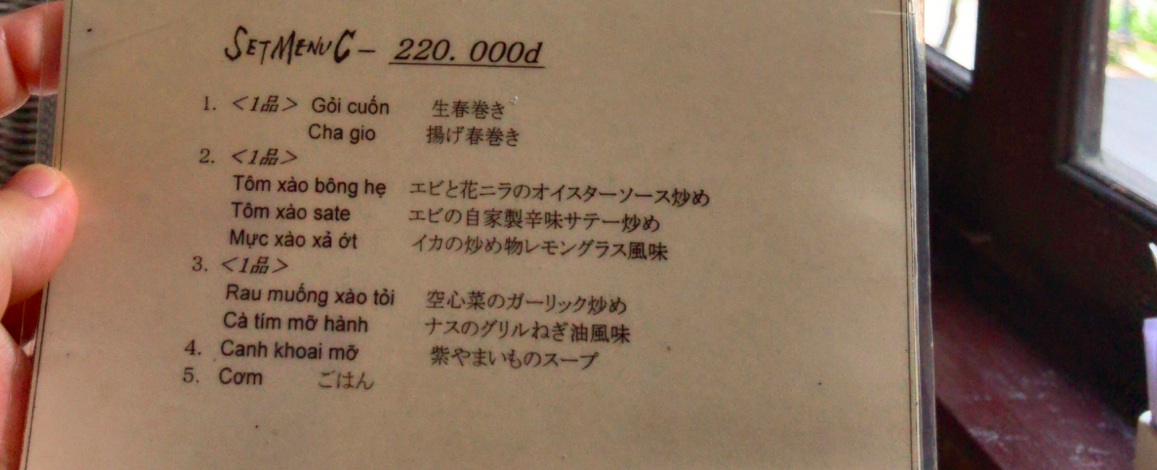 SET MENU C – 220. 000đ
1. <1品> Gỏi cuốn 生春巻き
Cha gio 揚げ春巻き
2. <1品>
Tôm xào bông hẹ エビと花ニラのオイスターソース炒め
Tôm xào sate エビの自家製辛味サテー炒め
Mực xào xả ớt イカの炒め物レモングラス風味
3. <1品>
Rau muống xào tỏi 空心菜のガーリック炒め
Cà tím mỡ hành ナスのグリルねぎ油風味
4. Canh khoai mỡ 紫やまいものスープ
5. Cơm ごはん